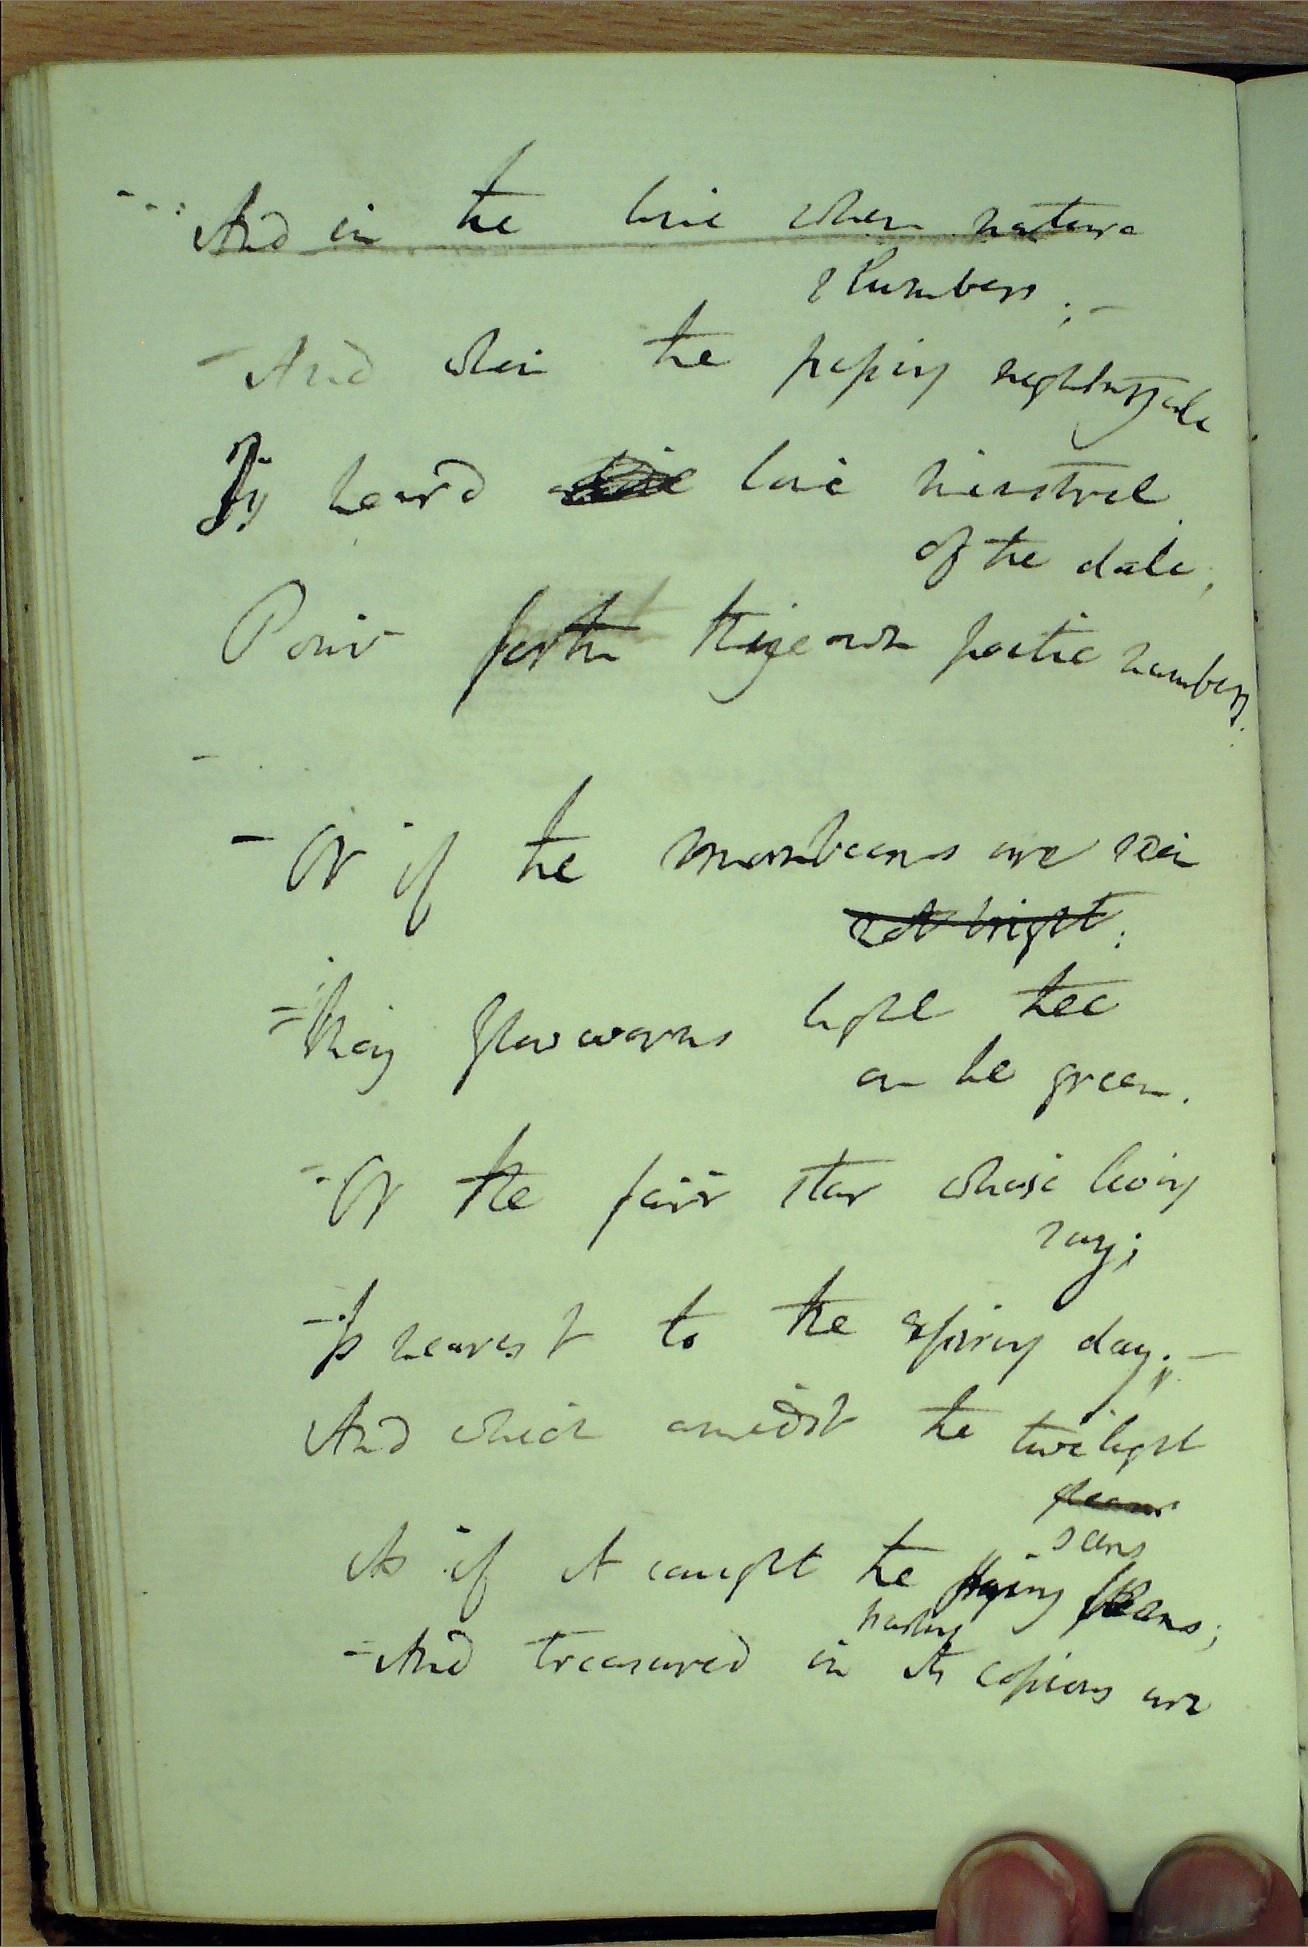 And in the time when nature
slumbers; -
- And when the
Is heard love minstrel
of the dale,
Pour forth thy own poetic numbers.
- Or if the moonbeams are seen
not bright:
May glowworms light thee
on the green.
- Or the fair star whose living
ray;
- Is nearest to the spiry day; -
And which amidst the twilight
gleams
seems
As if it caught the flying beams;
- And treasured in its copious urn